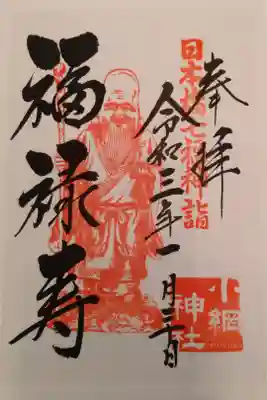 奉拝
日本橋七福神詣
令和三年一月三日
福禄寿
小網
神社